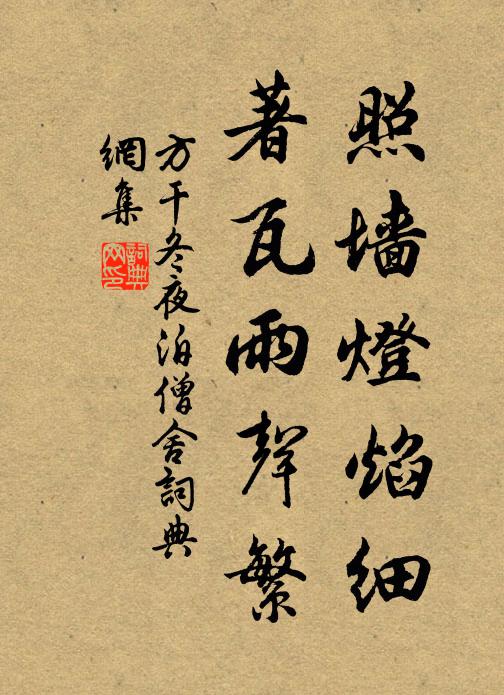 照墙燈焰细
著瓦雨聲繁
方干冬夜泊僧舍詞典
網集
詞典網印